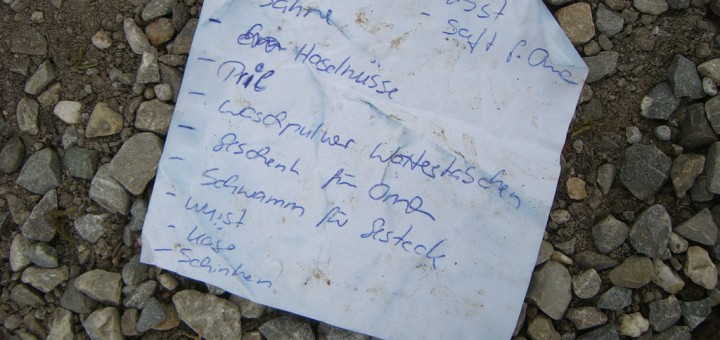 Sahne
- Haselnüsse
- Pril
- Waschpulver Wattestäbchen
- Geschenk für Oma
- Schwamm für Gesteck.
- Wurst
- Käse
- Schinken
- Saft f. Oma